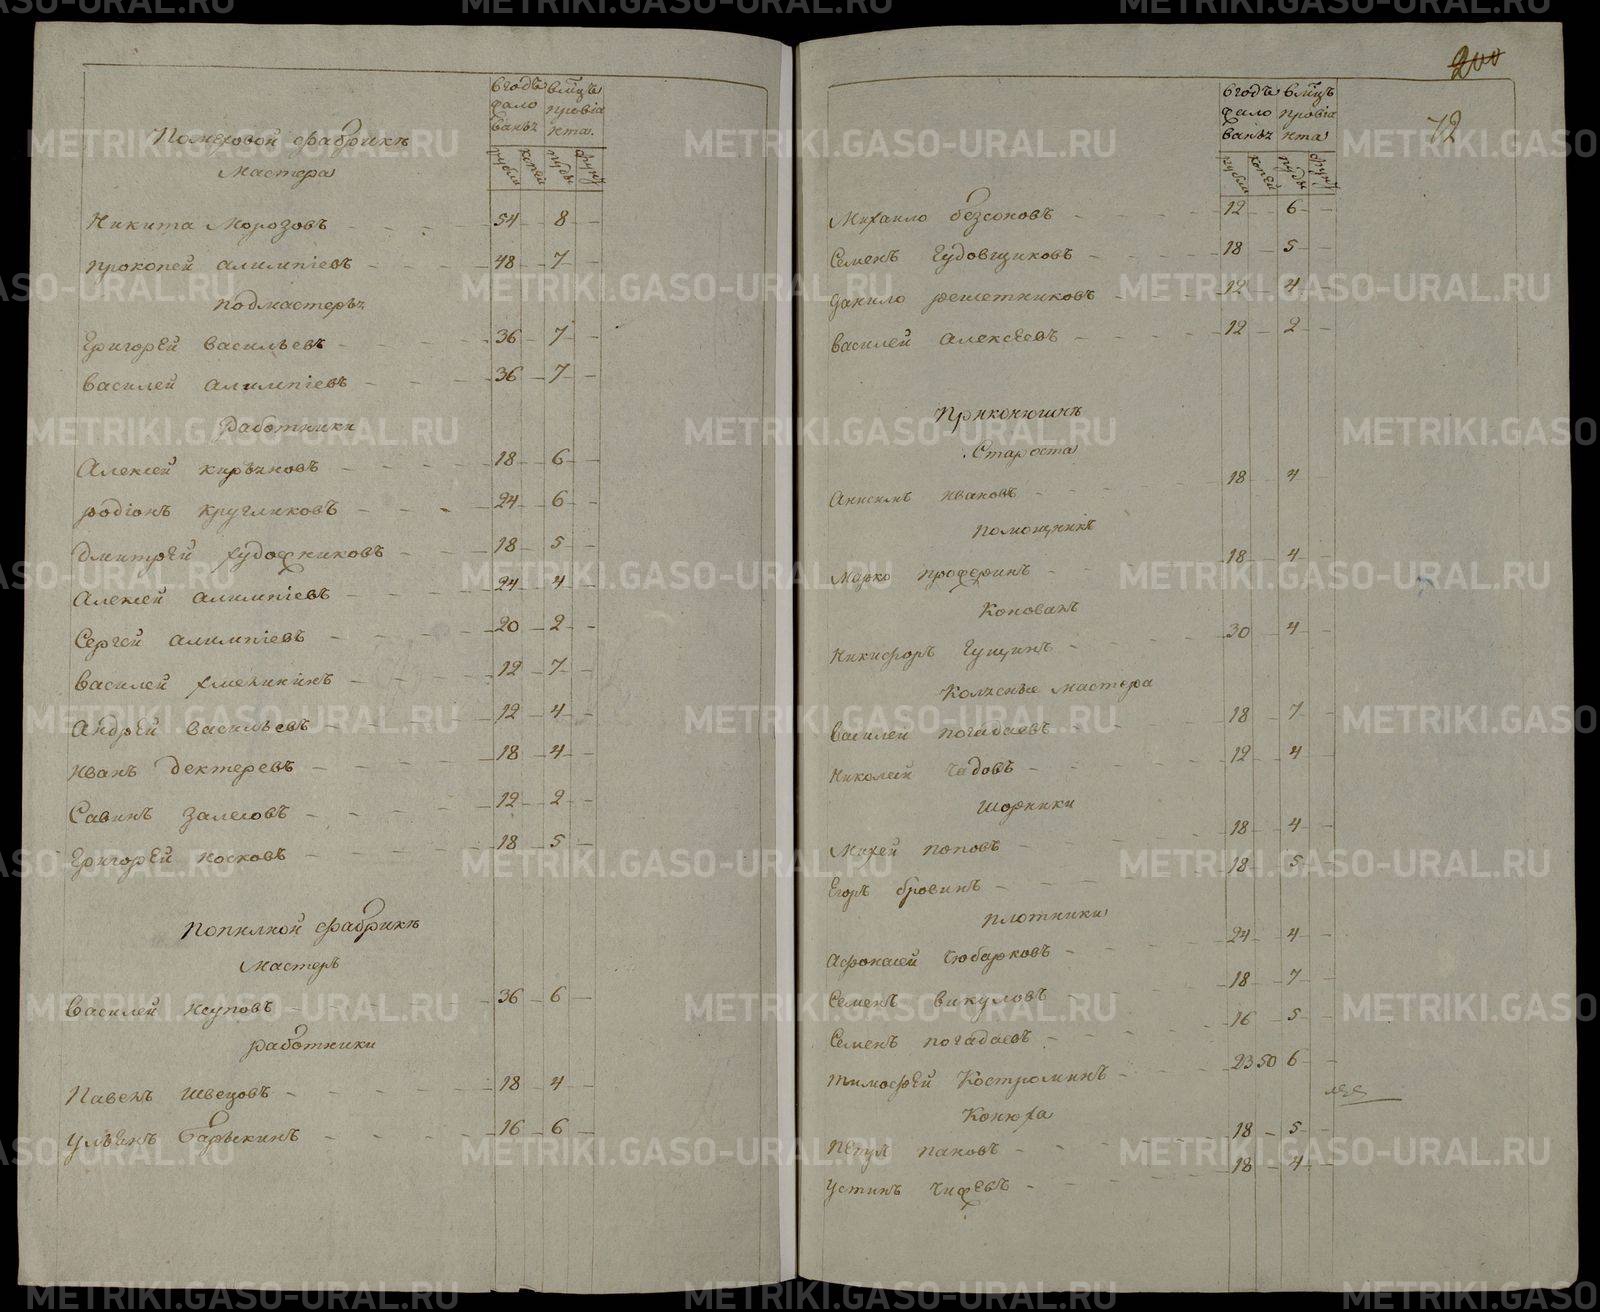 вгодъ вмцъ
жало провіа
ванья нта
рубли копей пуды фунт
По меховой фабрикѣ
Мастера
Никита Морозовъ 54 8
прокопей алимпіевъ 48 7
подмастерья
Григорей васильевъ 36 7
василей алимпіевъ 36 7
Работники
Алексей 18 6
родіонъ кругликовъ 24 6
Дмитрей художниковъ 18 5
Алексей алимпіевъ 24 4
Сергей алимпіевъ 20 2
василей хмелинінъ 12 7
Андрей васильевъ 12 4
иванъ дектеревъ 18 4
Савинъ залесовъ 12 2
Григорей носковъ 18 5
попилной фабрикѣ
мастеръ
василей иуповъ 36 6
работники
Павелъ швецовъ 18 4
ульянъ барыкинъ 16 6
200
72
вгодъ вмцъ
жало провіа
ванья нта
рубли копей пуды фунт
Михаило безсоновъ 12 6
Семенъ Гудовщиковъ 18 5
данило решетниковъ 12 4
василей Алексеевъ 12 2
При конюшнѣ
Староста
Анисимъ ивановъ 18 4
помощникъ
Марко проферинъ 18 4
Коновалъ
Никифоръ Гущинъ 30 4
Колесные мастера
василей погадаевъ 18 7
Николай Чадовъ 12 4
шорники
Михей поповъ 18 4
Егоръ бровинъ 18 5
плотники
Афонасей Чюбарковъ 24 4
Семенъ викуловъ 18 7
Семенъ погадаевъ 16 5
тимофей Костроминъ 23 50 6
Конюха
петръ пановъ 18 5
устинъ 18 4